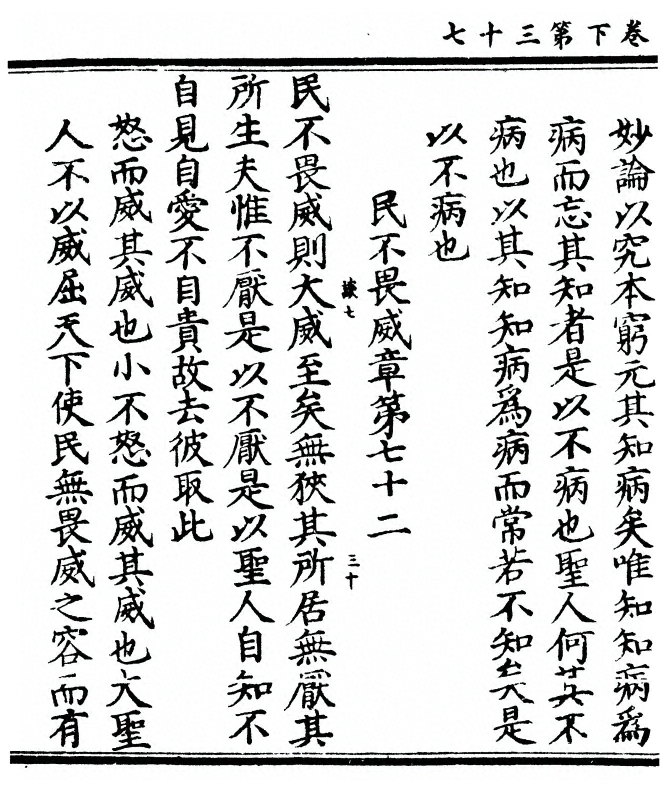 卷下第三十七
妙論以究本窮元其知病矣唯知知病爲
病而忘其知者是以不病也聖人何其不
病也以其知知病爲病而常若不知矣是
以不病也
民不畏威章第七十二
談七 三十
民不畏威則大威至矣無狹其所居無厭其
所生夫惟不厭是以不厭是以聖人自知不
自見自愛不自貴故去彼取此
怒而威其威也小不怒而威其威也大聖
人不以威屈天下使民無畏威之容而有